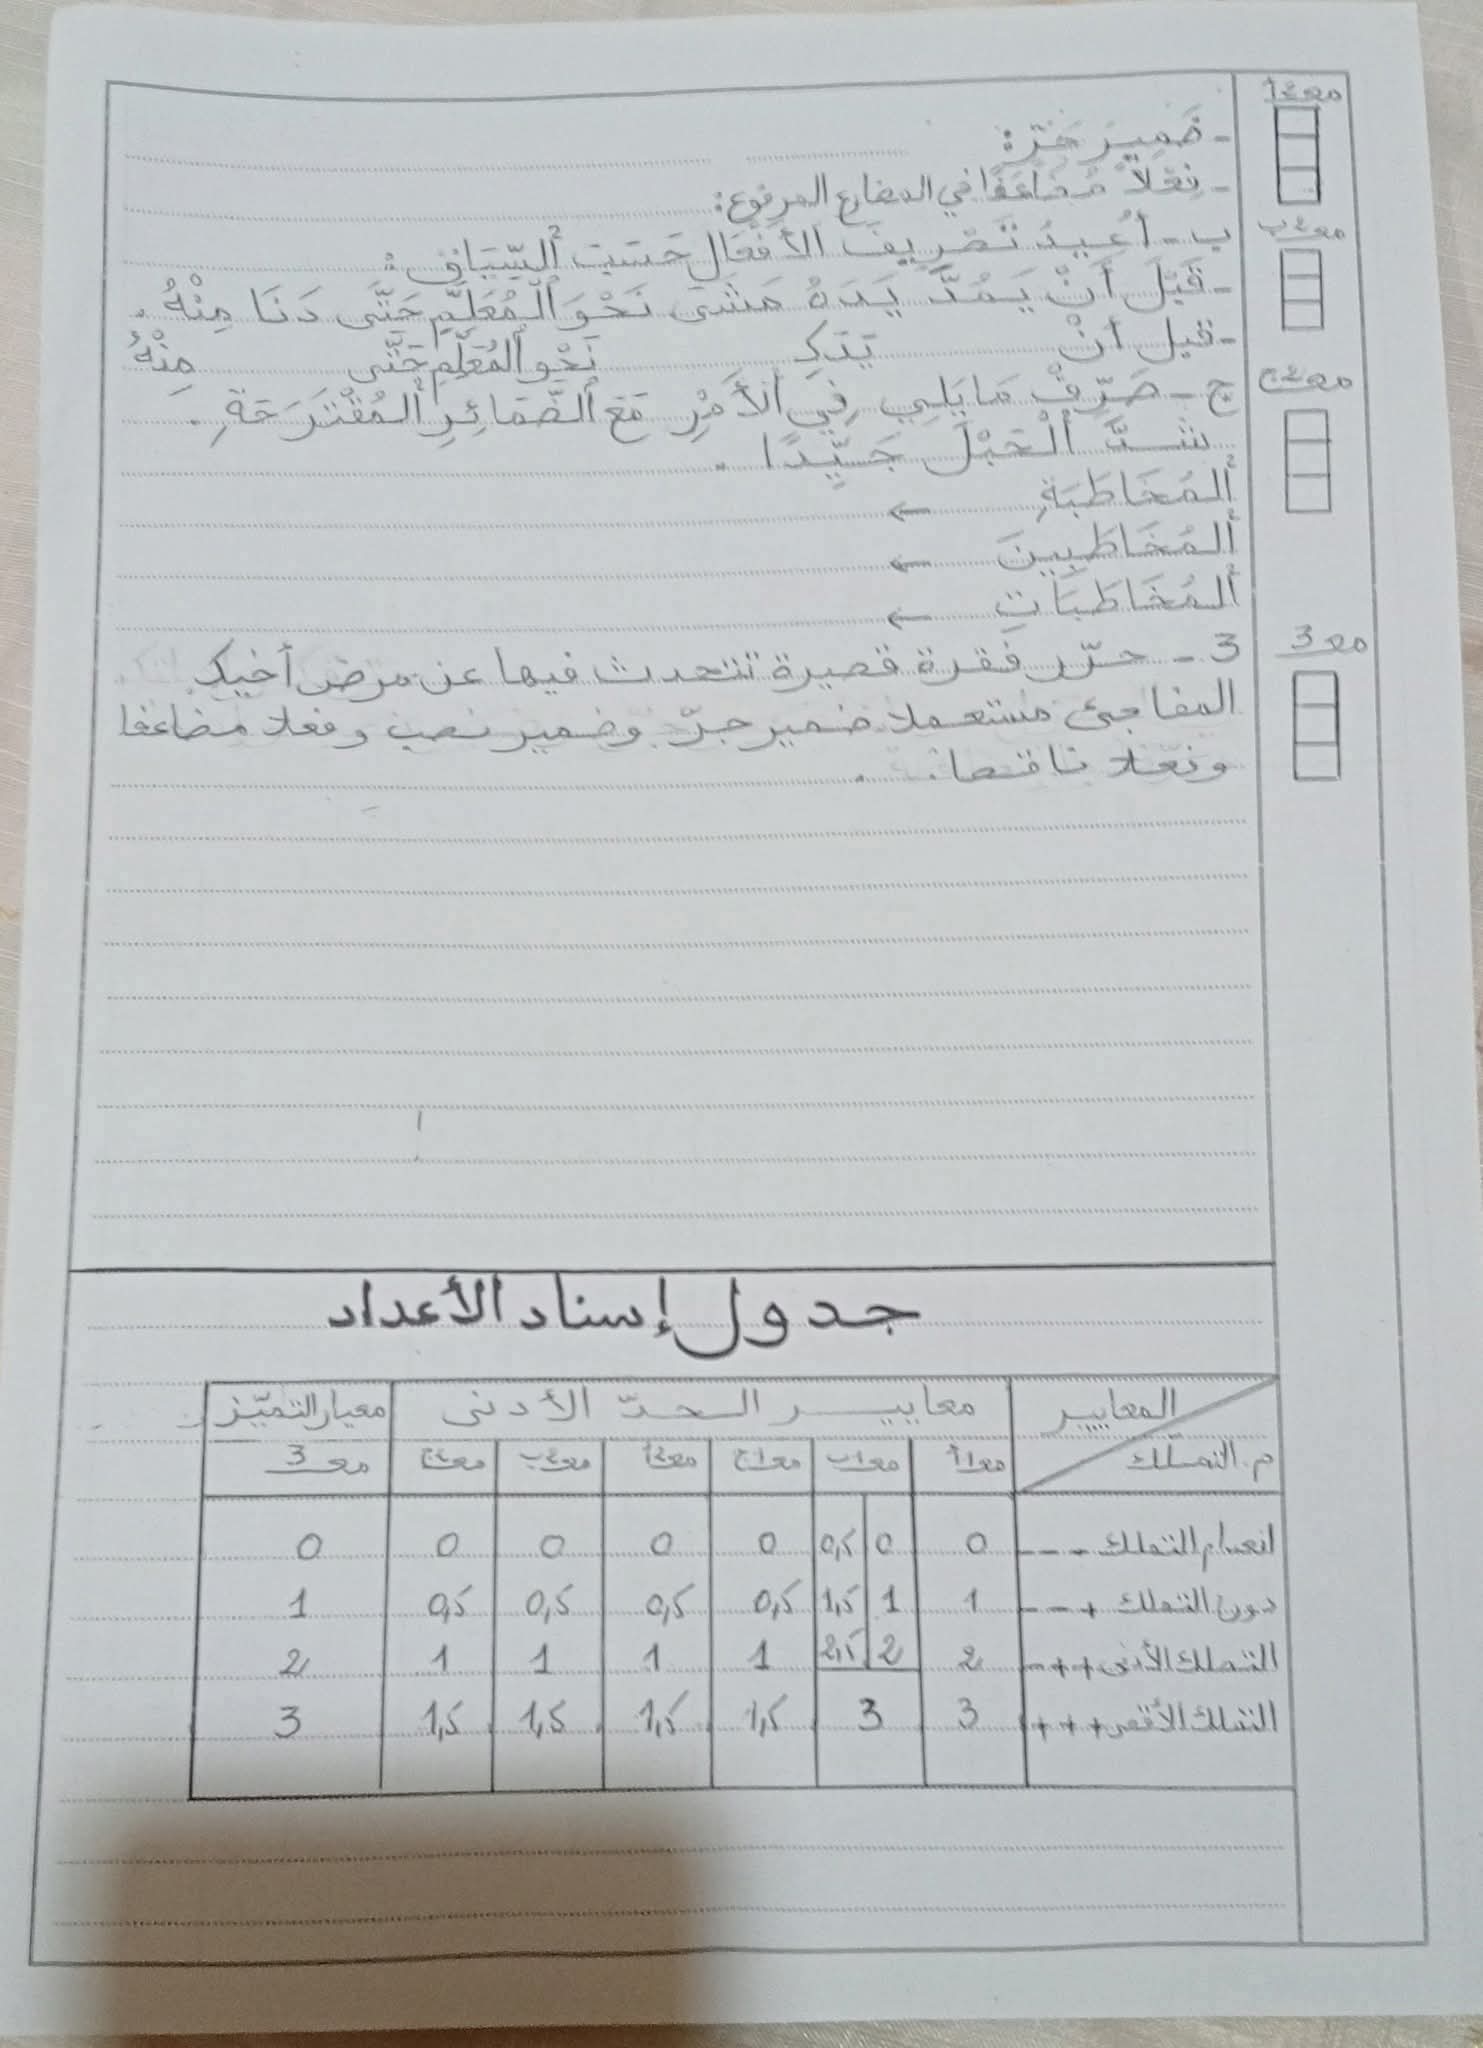 مع2أ
- ضَمِيرَ جَرّ:
- فِعْلاً مُضَاعَفًا في المضارع المرفوع:
مع2ب
ب- أُعِيدُ تَصْرِيفَ الأَفْعَال حَسَبَ ألسِّيَاقِ:
- قَبْلَ أَنْ يَمُدَّ يَدَهُ مَشَى نَحْوَ ألْمُعَلِّمِ حَتَّى دَنَا مِنْهُ.
- قبل أنْ يَدَكِ نَحْوَ ألمُعَلِّمِ حَتَّى مِنْهُ
مع2ج
ج- صَرِّفْ مَا يَلِي فِي الأَمْرِ مَعَ ألضَّمَائِرِ ألمُقْتَرَحَةِ.
شَدَّ ألْحَبْلَ جَيِّدًا.
ألمُخَاطَبَةِ ←
ألمُخَاطَبِينَ ←
ألمُخَاطَبَاتِ ←
مع3
3- حرّر فقرة قصيرة تتحدث فيها عن مرض أخيك
المفاجئ مستعملا ضمير جرّ وضمير نصب وفعلا مضاعفا
وفعلا ناقصا.
جدول إسناد الأعداد
المعايير معايير الحدّ الأدنى معيار التميّز
م.التملّك مع1أ مع1ب مع1ج مع2أ مع2ب مع2ج مع3
انعدام التملك --- 0 0 0,5 0 0 0 0 0
دون التملك +-- 1 1 1,5 0,5 0,5 0,5 0,5 1
التملك الأدنى ++- 2 2 2,5 1 1 1 1 2
التملك الأقصى +++ 3 3 1,5 1,5 1,5 1,5 3